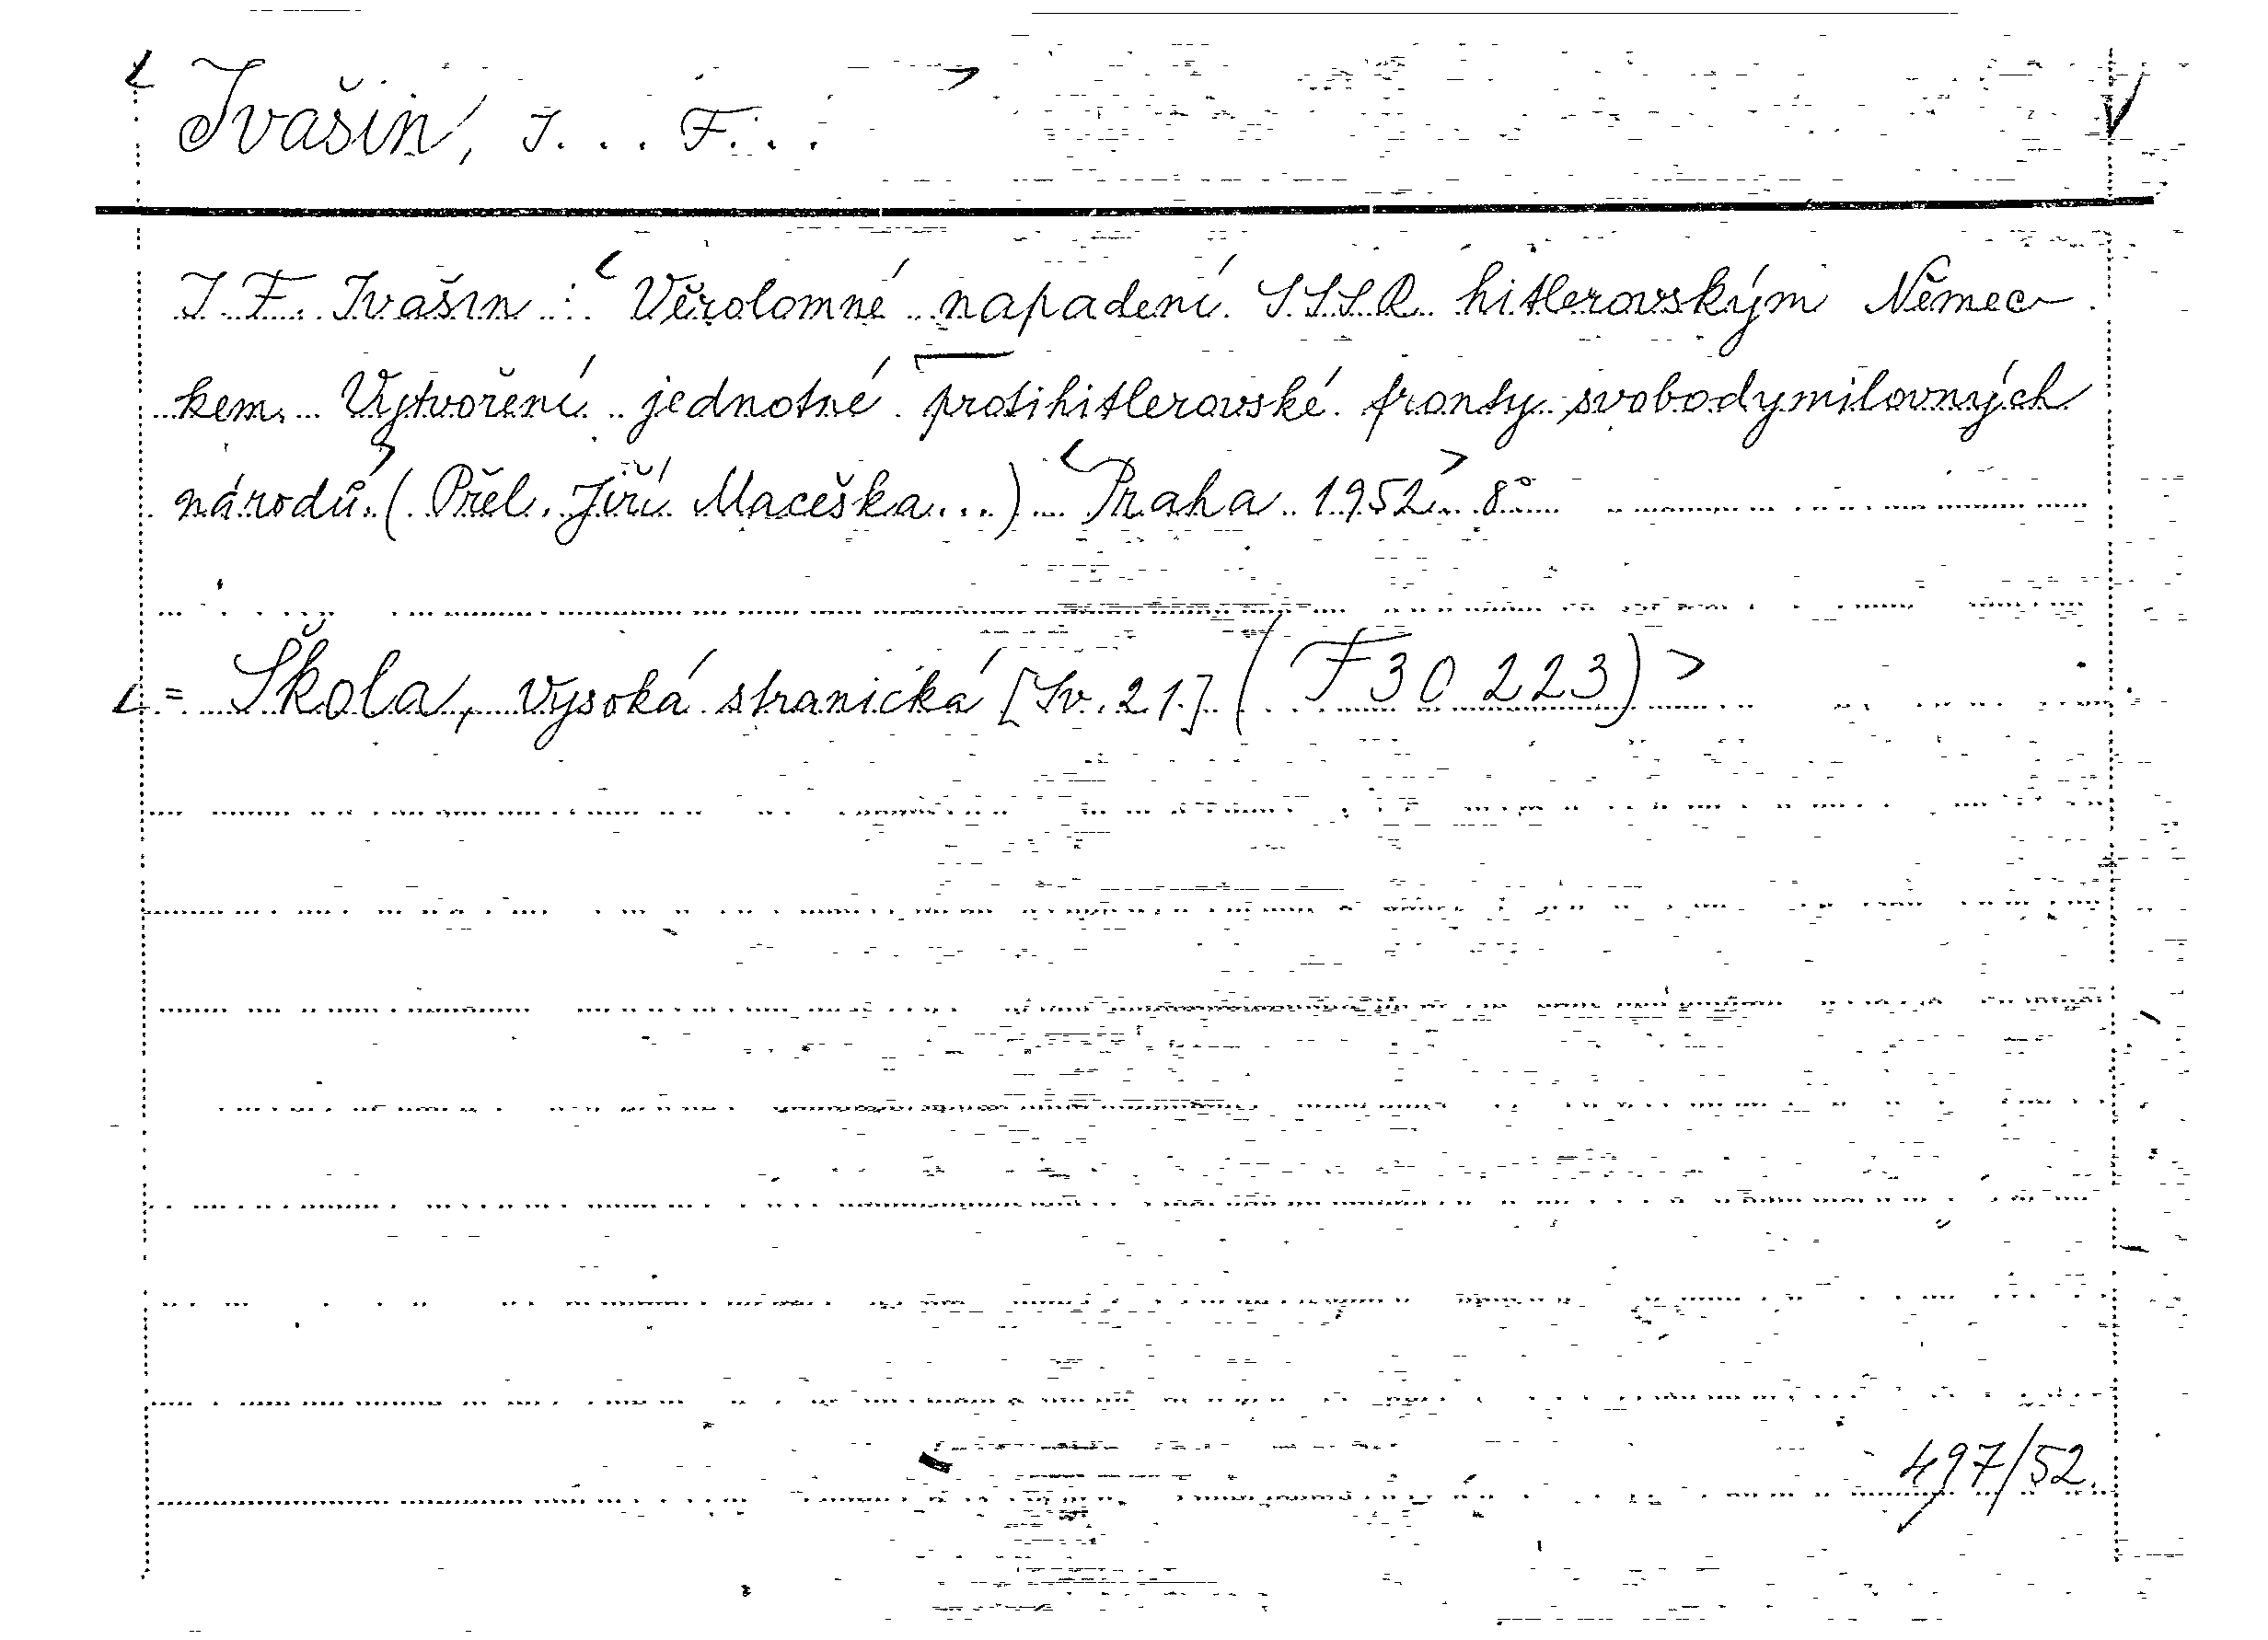 Ivašin, I... F...
I. F. Ivašin: Věrolomné napadení SSSR hitlerovským Němec-
kem. Vytvoření jednotné protihitlerovské fronty svobodymilovných
národů. (Přel. Jiří Maceška...) Praha 1952. 8°
= Škola, vysoká stranická [Sv. 21.] (F 30 223)
497/52.